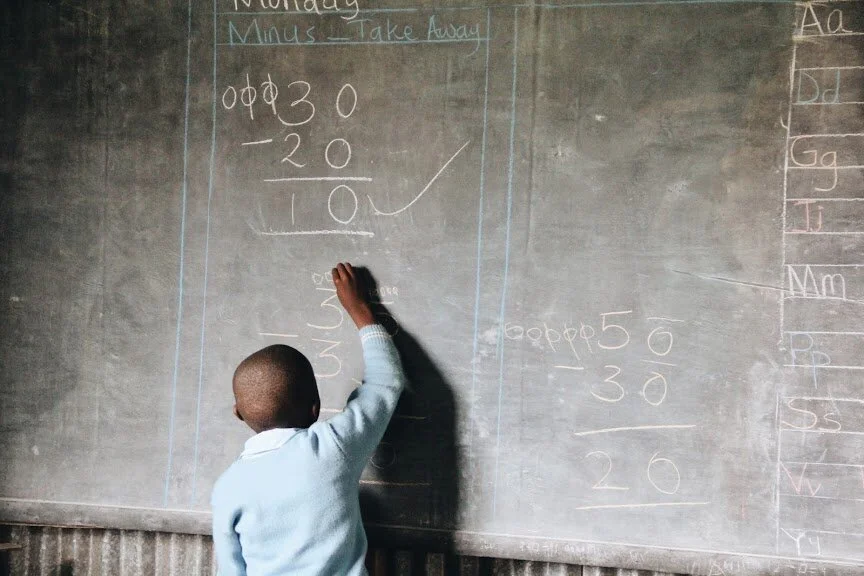 Monday
Minus - Take Away
30
- 20
10
3
- 3
50
- 30
20
Aa
Dd
Gg
Jj
Mm
Pp
Ss
Vv
Yy